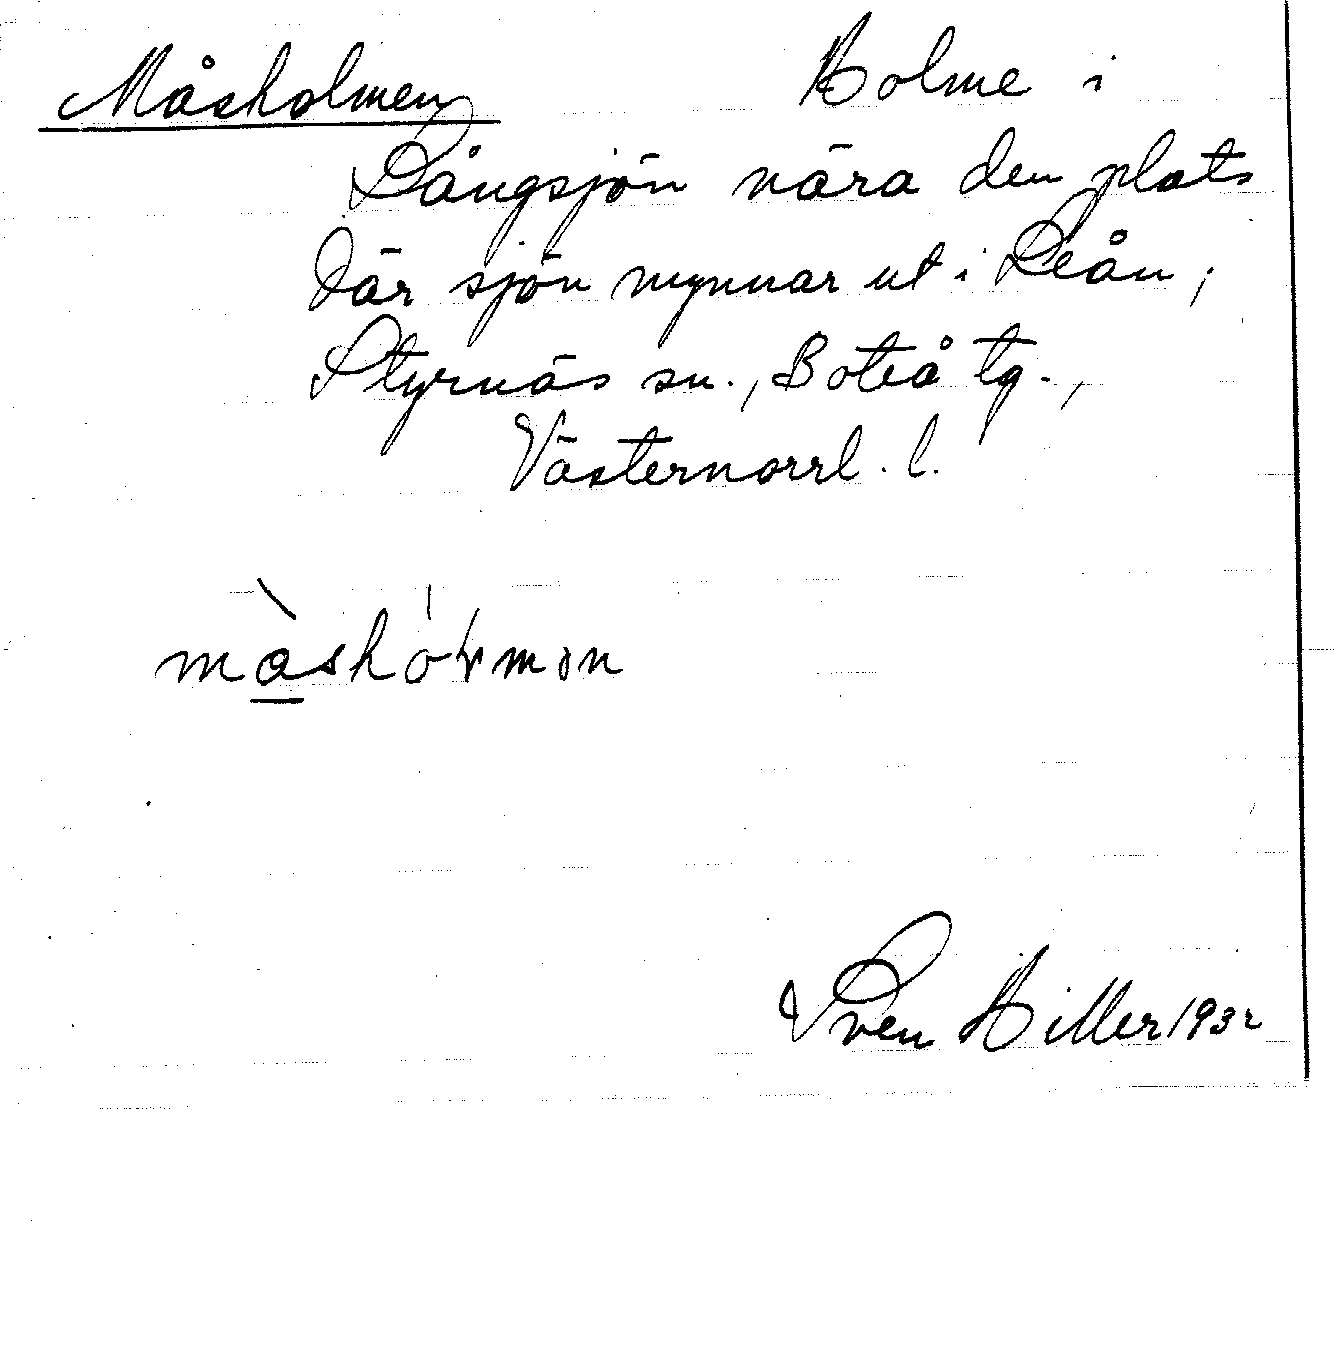 Måsholmen Holme i
Långsjön nära den plats
där sjön mynnar ut i Leån,
Styrnäs sn., Boteå tg.,
Västernorrl. l.
Sven Hiller 1932